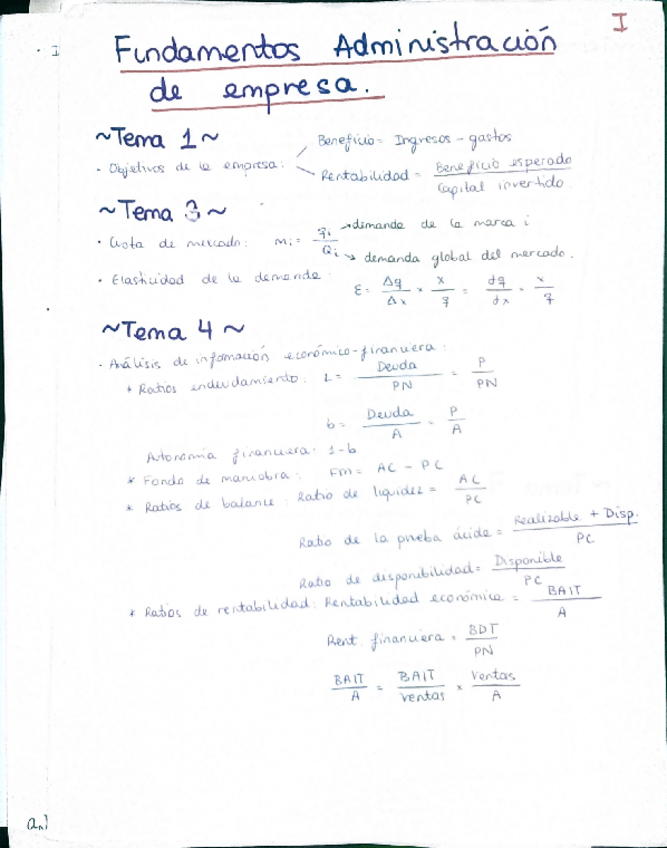 I
I
Fundamentos Administración
de empresa.
~Tema 1~
· Objetivos de la empresa: Beneficio = Ingresos - gastos
Rentabilidad = Beneficio esperado / Capital invertido
~Tema 3~
· Cuota de mercado: Mi = qi / Qi → demanda de la marca i
→ demanda global del mercado.
· Elasticidad de la demanda: ε = Δq/Δx × x/q = dq/dx · x/q
~Tema 4~
· Análisis de información económico-financiera:
* Ratios endeudamiento: L = Deuda / PN = P / PN
b = Deuda / A = P / A
Autonomía financiera: 1-b
* Fondo de maniobra: FM = AC - PC
* Ratios de balance: Ratio de liquidez = AC / PC
Ratio de la prueba ácida = Realizable + Disp. / PC
Ratio de disponibilidad = Disponible / PC
* Ratios de rentabilidad: Rentabilidad económica = BAIT / A
Rent. financiera = BDT / PN
BAIT / A = BAIT / Ventas × Ventas / A